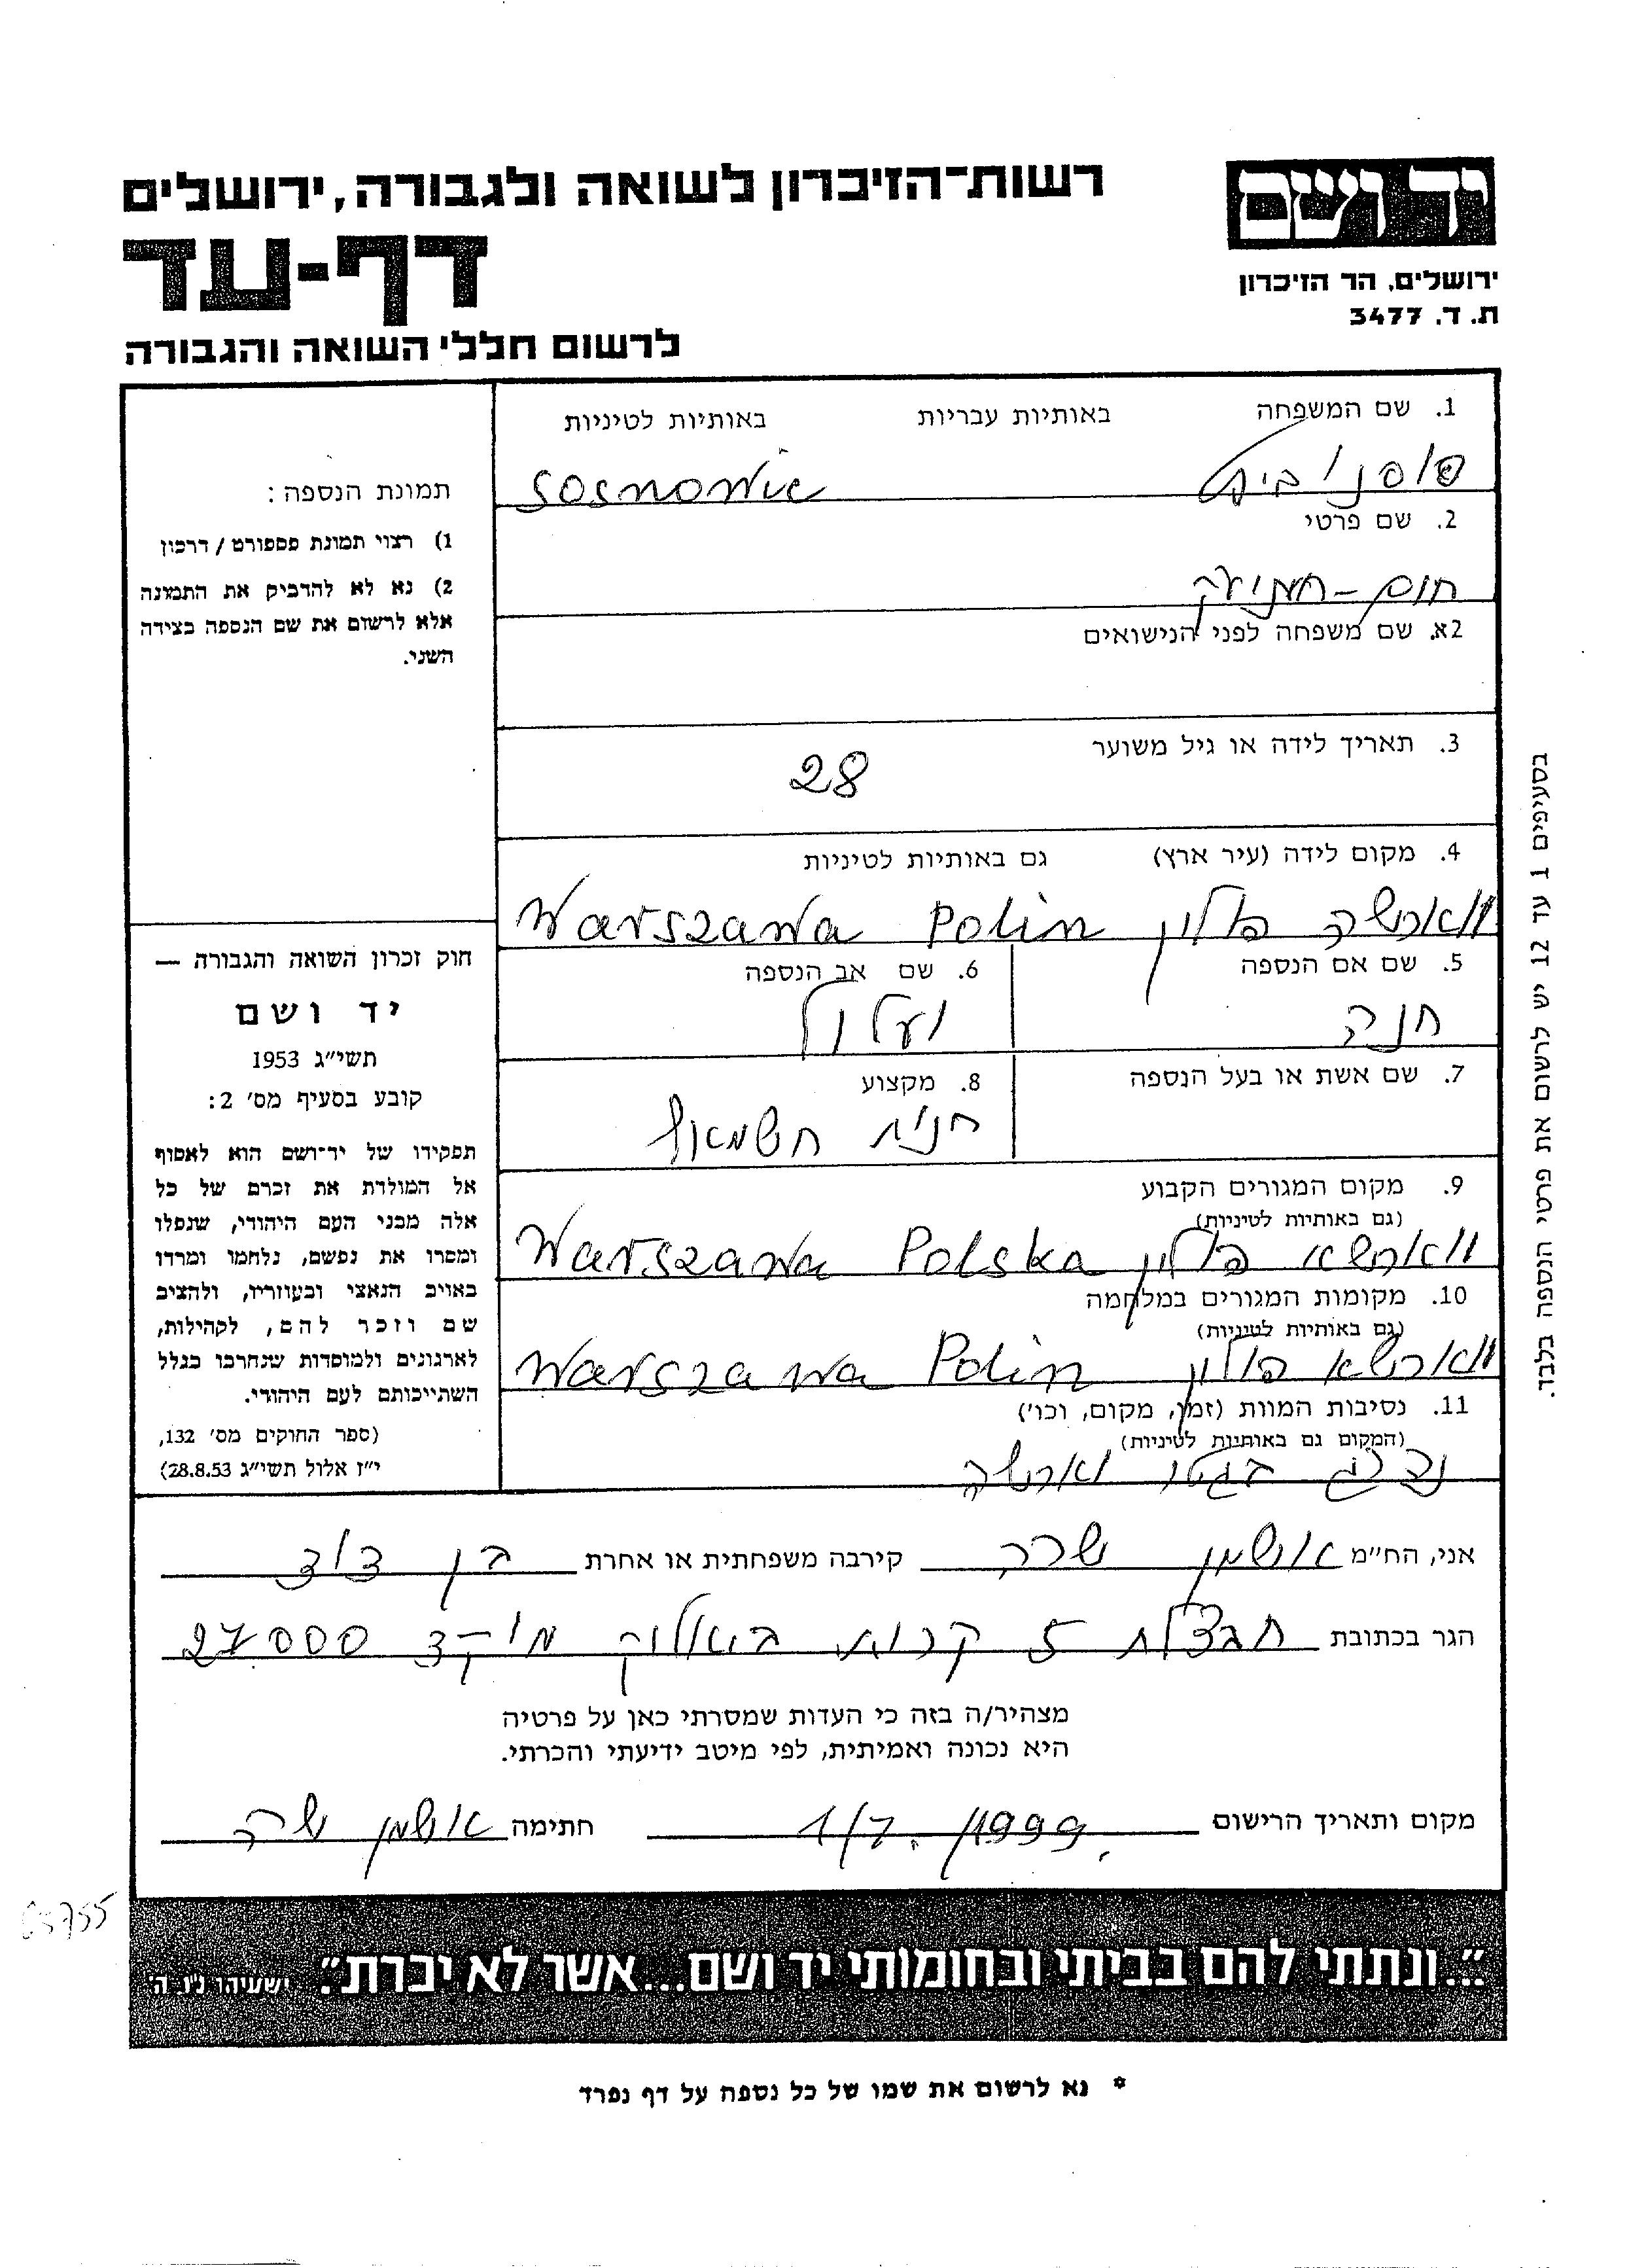 רשות-הזיכרון לשואה ולגבורה, ירושלים
דף-עד
לרשום חללי השואה והגבורה
יד ושם
ירושלים, הר הזיכרון
ת. ד. 3477
1. שם המשפחה באותיות עבריות באותיות לטיניות
Sosnowic
2. שם פרטי
2א. שם משפחה לפני הנישואים
3. תאריך לידה או גיל משוער
28
4. מקום לידה (עיר ארץ) גם באותיות לטיניות
ווארשה פולין Warszawa Polin
5. שם אם הנספה
חנה
6. שם אב הנספה
7. שם אשת או בעל הנספה
8. מקצוע
חשמאל
9. מקום המגורים הקבוע
(גם באותיות לטיניות)
ווארשא פולין Warszawa Polska
10. מקומות המגורים במלחמה
(גם באותיות לטיניות)
ווארשא פולין Warszawa Polin
11. נסיבות המוות (זמן, מקום, וכו')
(המקום גם באותיות לטיניות)
בגטו וארשה
תמונת הנספה:
1) רצוי תמונת פספורט / דרכון
2) נא לא להדביק את התמונה
אלא לרשום את שם הנספה בצידה
השני.
חוק זכרון השואה והגבורה —
יד ושם
תשי"ג 1953
קובע בסעיף מס' 2:
תפקידו של יד-ושם הוא לאסוף
אל המולדת את זכרם של כל
אלה מבני העם היהודי, שנפלו
ומסרו את נפשם, נלחמו ומרדו
באויב הנאצי ובעוזריו, ולהציב
שם וזכר להם, לקהילות,
לארגונים ולמוסדות שנחרבו בגלל
השתייכותם לעם היהודי.
(ספר החוקים מס' 132,
י"ז אלול תשי"ג 28.8.53)
בסעיפים 1 עד 12 יש לרשום את פרטי הנספה בלבד.
אני, הח"מ אושמן שרה קירבה משפחתית או אחרת בן דוד
הגר בכתובת חבצלת 5 קרית ביאליק מיקד 27000
מצהיר/ה בזה כי העדות שמסרתי כאן על פרטיה
היא נכונה ואמיתית, לפי מיטב ידיעתי והכרתי.
מקום ותאריך הרישום 1/7.1999 חתימה אושמן שרה
"...ונתתי להם בביתי ובחומותי יד ושם...אשר לא יכרת". ישעיהו נ"ו ה'
* נא לרשום את שמו של כל נספה על דף נפרד